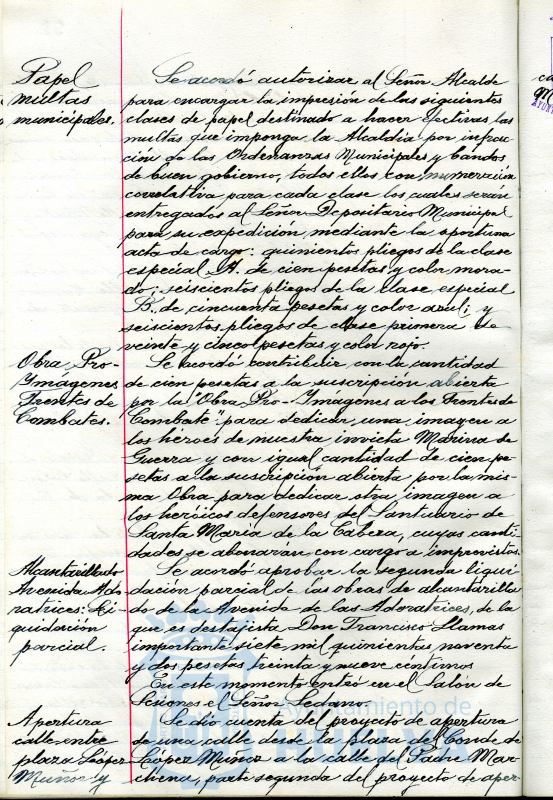 Papel
multas
municipales.
Se acordó autorizar al Señor Alcalde
para encargar la impresión de las siguientes
clases de papel destinado a hacer efectivas las
multas que imponga la Alcaldia por infrac
ción de las Ordenanzas Municipales y bandos
de buen gobierno, todos ellos con numeración
correlativa para cada clase los cuales serán
entregados al Señor Depositario Municipal
para su expedición mediante la oportuna
acta de cargo: quinientos pliegos de la clase
especial A. de cien pesetas y color mora-
do; seiscientos pliegos de la clase especial
B. de cincuenta pesetas y color azul; y
seiscientos pliegos de clase primera de
veinte y cinco pesetas y color rojo.
Obra Pro-
Imagenes
Frentes de
Combates.
Se acordó contribuir con la cantidad
de cien pesetas a la suscripción abierta
por la "Obra Pro-Imagenes a los Frentes de
Combate" para dedicar una imagen a
los héroes de nuestra invicta Marina de
Guerra y con igual cantidad de cien pe-
setas a la suscripción abierta por la mis-
ma Obra para dedicar otra imagen a
los heróicos defensores del Santuario de
Santa Maria de la Cabeza, cuyas canti-
dades se abonarán con cargo a imprevistos.
Alcantarillado
Avenida Ado
ratrices: Li-
quidación
parcial.
Se acordó aprobar la segunda liqui
dación parcial de las obras de alcantarilla
do de la Avenida de las Adoratrices, de la
que es destajista Don Francisco Llamas
importante siete mil quinientas noventa
y dos pesetas treinta y nueve centimos
En este momento entró en el Salón de
Sesiones el Señor Sedano.
Apertura
calle entre
plaza López
Muñoz y
Se dio cuenta del proyecto de apertura
de una calle desde la plaza del Conde de
López Muñoz a la calle del Padre Mar-
chena, parte segunda del proyecto de aper-
Ayuntamiento de
HUELVA